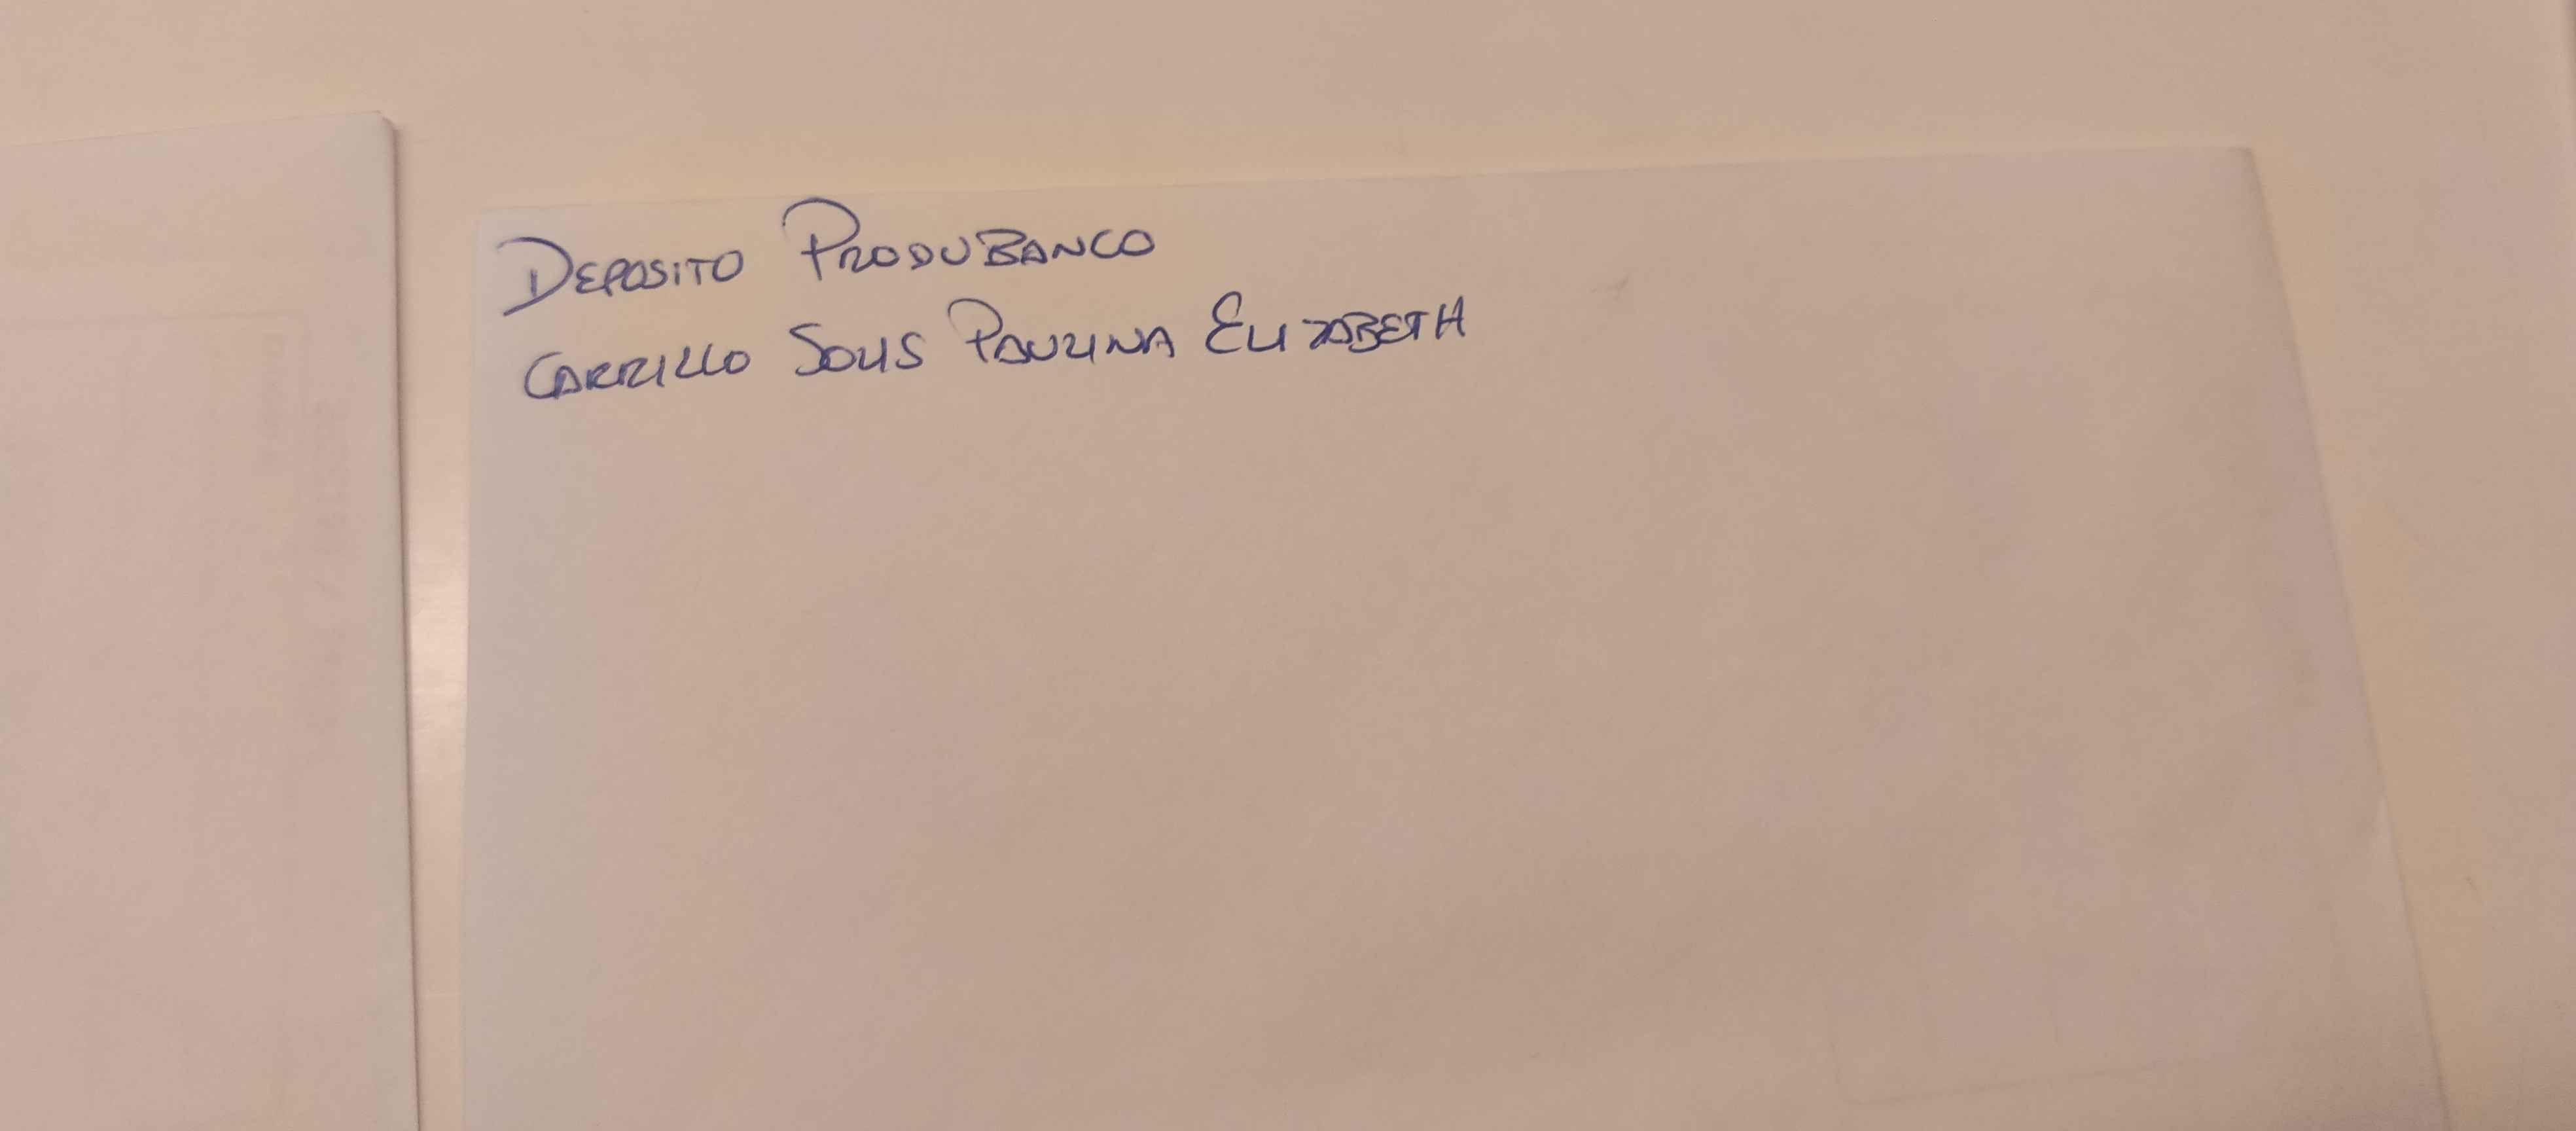 DEPOSITO PRODUBANCO
CARRILLO SOLIS PAULINA ELIZABETH